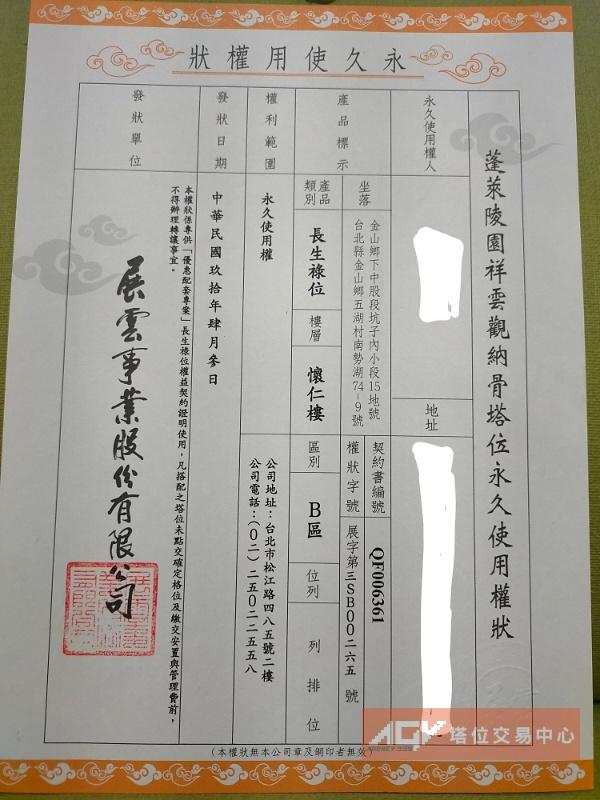 永久使用權狀
蓬萊陵園祥雲觀納骨塔位永久使用權狀
永久使用權人
地址
產品標示
坐落
金山鄉下中股段坑子內小段15地號
台北縣金山鄉五湖村南勢湖74-9號
契約書編號
QF006361
權狀字號
展字第三SB00二六五 號
產品類別
長生祿位
樓層
懷仁樓
區別
B區
位列
列 排 位
權利範圍
永久使用權
公司地址：台北市松江路四八五號二樓
公司電話：(０二)二五０二二五五八
發狀日期
中華民國玖拾年肆月參日
發狀單位
本權狀係專供「優惠配套專案」長生祿位權益契約證明使用，凡搭配之塔位未點交確定格位及繳交安置與管理費前，
不得辦理轉讓事宜。
展雲事業股份有限公司
(本權狀無本公司章及鋼印者無效)
AGY 塔位交易中心